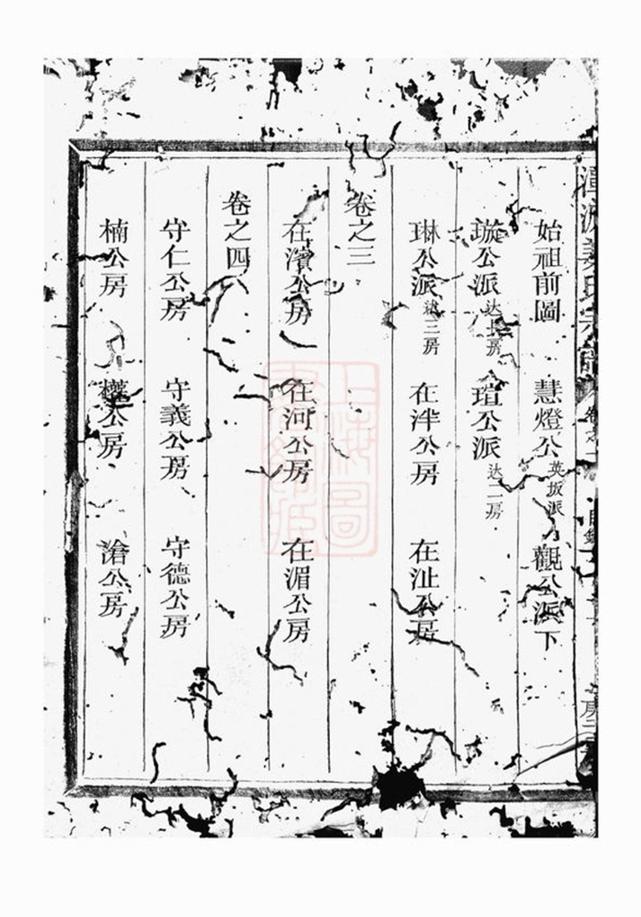 始祖前圖 慧燈公英拔派 觀公派下
璇公派达長房 瑄公派达二房
琳公派達三房 在泮公房 在沚公房
卷之三
在濱公房 在河公房 在湄公房
卷之四
守仁公房 守義公房 守德公房
楠公房 公房 滄公房